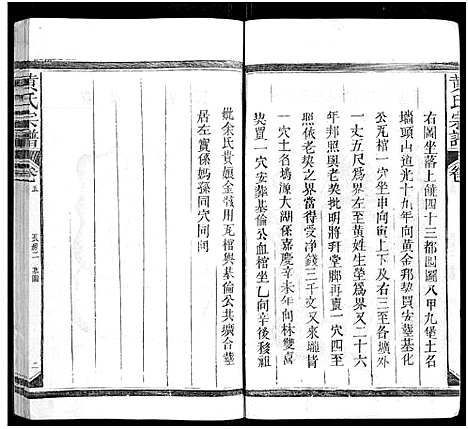 黄氏宗譜
卷
右圖坐落上饒四十三都四圖八甲九堡土名
墻頭山道光十九年向黄金邦契買安塟基化
公瓦棺一穴坐申向寅上下及右三至各壙外
一丈五尺為界左至黄姓生塋為界又二十六
年邦照與老契批明將拜堂脚再賣一穴四至
照依老契之界當得受淨錢三千文又來壠背
一穴土名塢源大湖係嘉慶辛未年向林雙喜
契買一穴安塟基倫公血棺坐乙向辛後移祖
妣余氏貴娘金骸用瓦棺與基倫公共壙合塟
居左實係媽孫同穴同向
黄氏宗譜
卷
五
墓圖
二